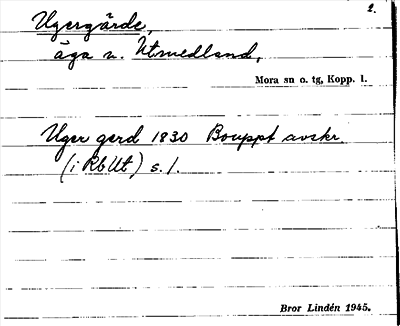 2.
Ugergärde,
äga u. Utmedland,
Mora sn o. tg, Kopp. l.
Uger gerd 1830 Bouppt avskr.
(i RbUt) s. 1.
Bror Lindén 1945.